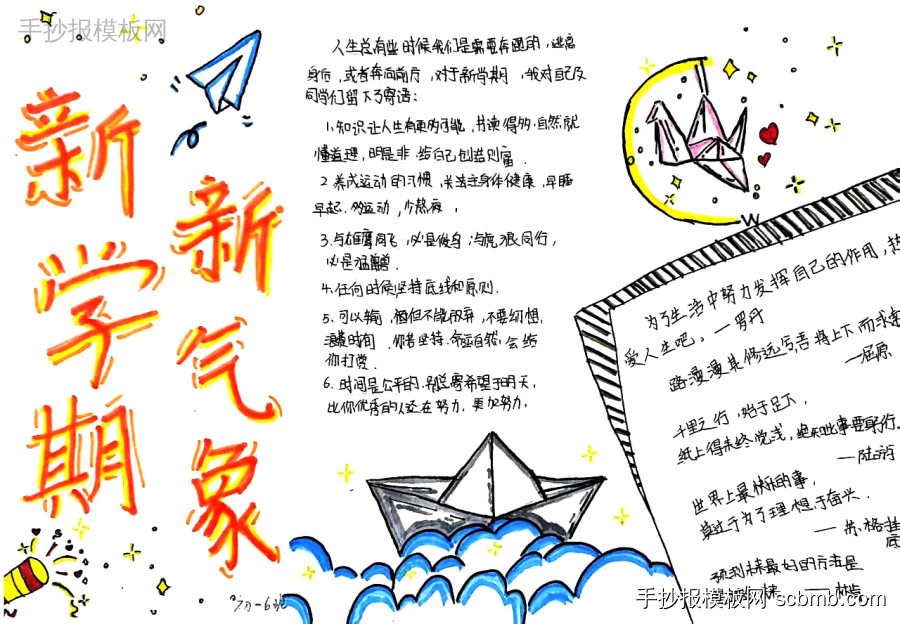 手抄报模板网
新学期
新气象
人生总有些时候我们是需要奔跑的，逃离
身后，或者奔向前方，对于新学期，我对自己及
同学们留下了寄语：
1.知识让人生有更多可能，书读得多，自然就
懂道理，明是非，给自己创造财富．
2.养成运动的习惯，关注身体健康，早睡
早起．多运动，少熬夜，
3.与雄鹰同飞，必是俊鸟．与虎狼同行，
必是猛兽．
4.任何时候坚持底线和原则．
5、可以输，但不能放弃，不要幻想，
时间，你若坚持，自然，会给
你打赏．
6.时间是公平的，寄希望于明天，
比你优秀的人还在努力，更加努力．
为了生活中努力发挥自己的作用，热
爱人生吧．—罗丹
路漫漫其修远兮吾将上下而求索
—屈原
千里之行，始于足下，
纸上得来终觉浅，绝知此事要躬行．
—陆游
世界上最快乐的事，
莫过于为了理想而奋斗．
—苏格拉
底
预测未来最好的方法是
手抄报模板网 scbmb.com